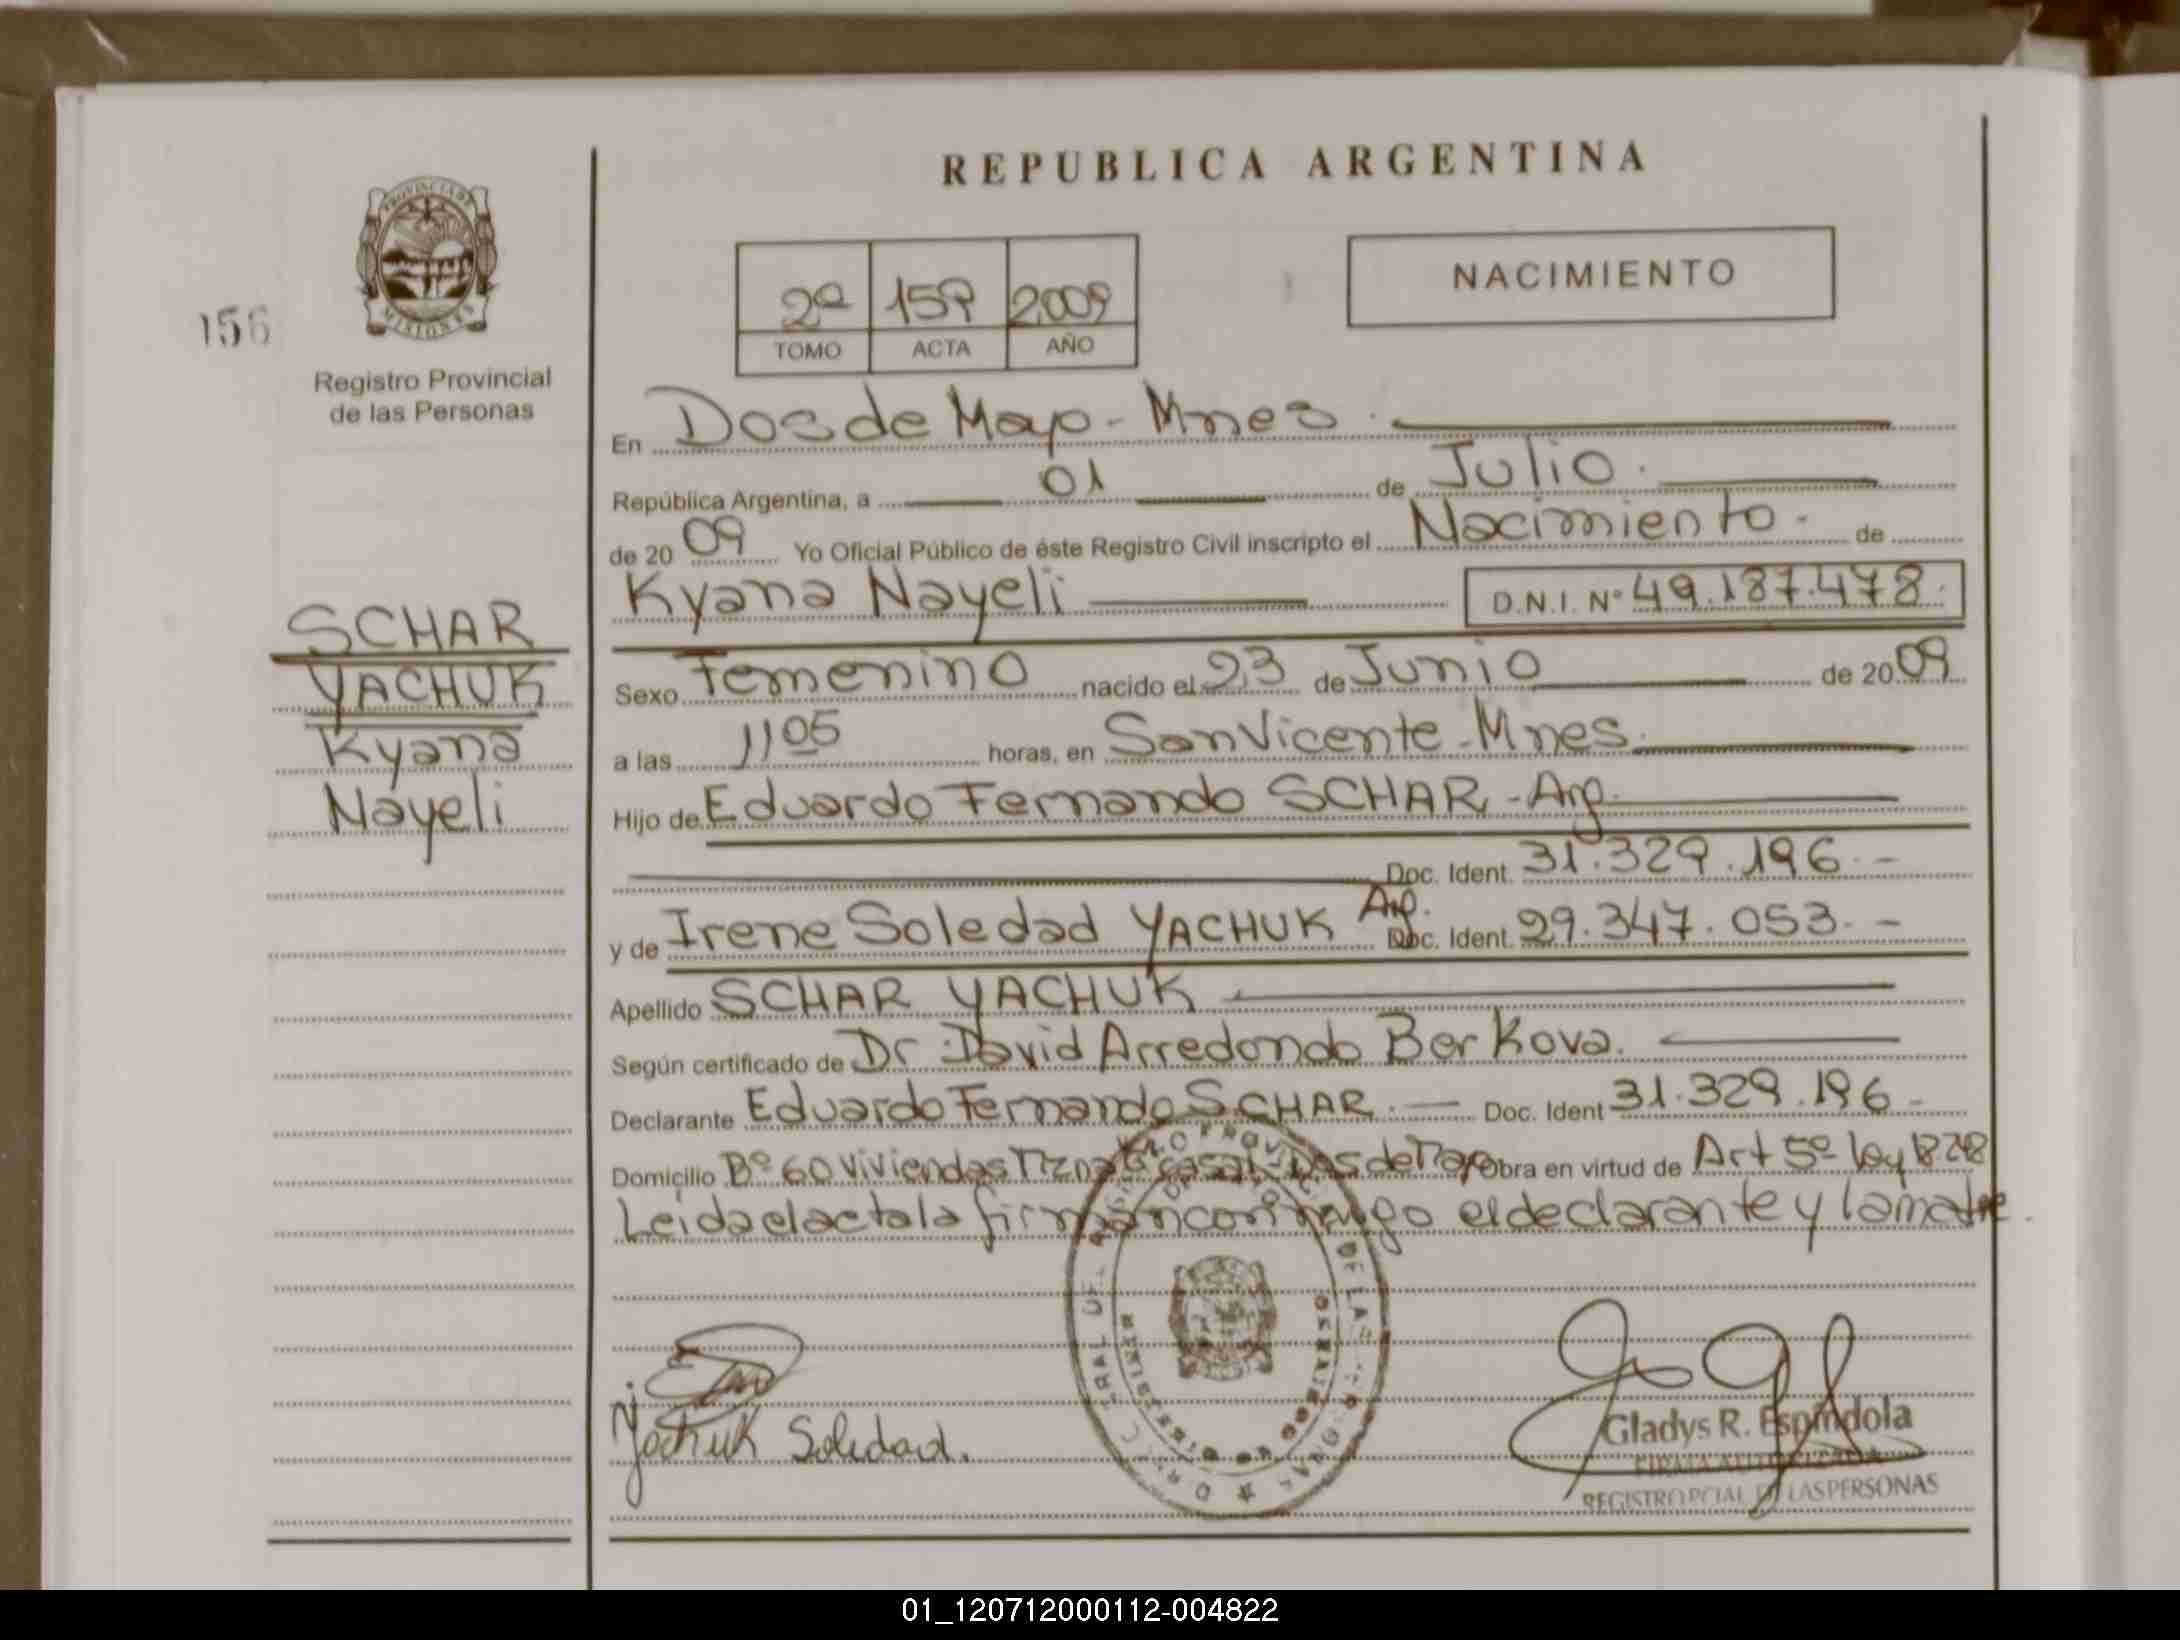 REPUBLICA ARGENTINA
PROVINCIA DE
MISIONES
156
Registro Provincial
de las Personas
2º 159 2,009
TOMO ACTA AÑO
NACIMIENTO
SCHAR
YACHUK
Kyana
Nayeli
En Dos de Mayo - Mnes
República Argentina, a 01 de Julio.
de 20 09 Yo Oficial Público de éste Registro Civil inscripto el Nacimiento - de
Kyana Nayeli D.N.I. Nº 49.187.478.
Sexo Femenino nacido el 23 de Junio de 20 09
a las 11 05 horas, en San Vicente - Mnes.
Hijo de Eduardo Fernando SCHAR - Arg.
Doc. Ident. 31.329.196.-
y de Irene Soledad YACHUK Arg. Doc. Ident. 29.347.053.-
Apellido SCHAR YACHUK
Según certificado de Dr. David Arredondo Berkova.
Declarante Eduardo Fernando SCHAR. - Doc. Ident 31.329.196 -
Domicilio Bº 60 Viviendas Mzna casa Dos de Mayo Obra en virtud de Art 5º ley 18248
Leida el acta la firman conmigo el declarante y la madre.
Yachuk Soledad.
Gladys R. Espíndola
FIRMA AUTORIZADA
REGISTRO PCIAL DE LAS PERSONAS
01_120712000112-004822